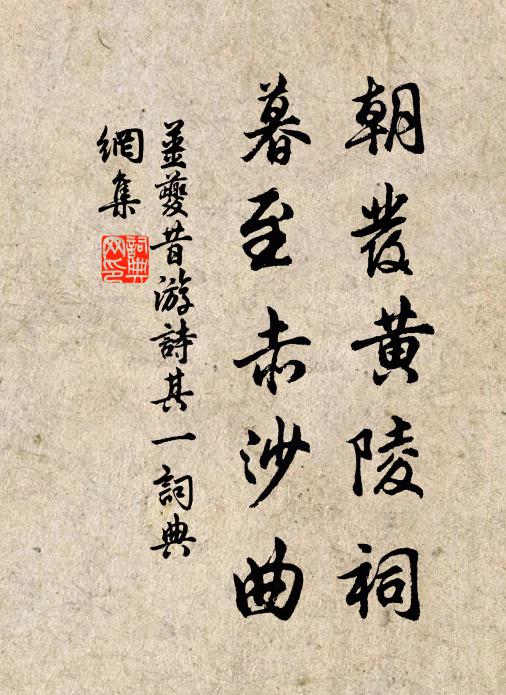 朝發黄陵祠
暮至赤沙曲
姜夔昔游詩其一詞典
網集
詞典网印